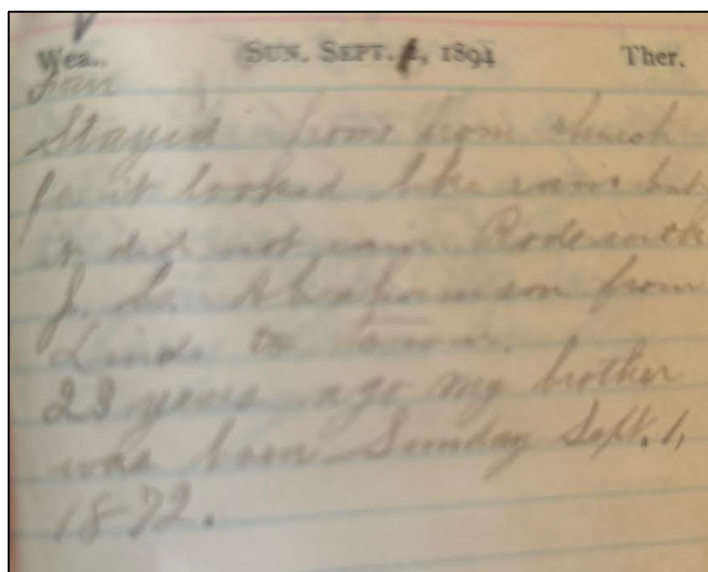 Wea. SUN. SEPT. 1, 1894 Ther.
Fair
Stayed home from church
it looked like rain but
it did not rain Rode with
J. L. Abrahamson from
to
23 years ago my brother
was born Sunday Sept. 1,
1872.